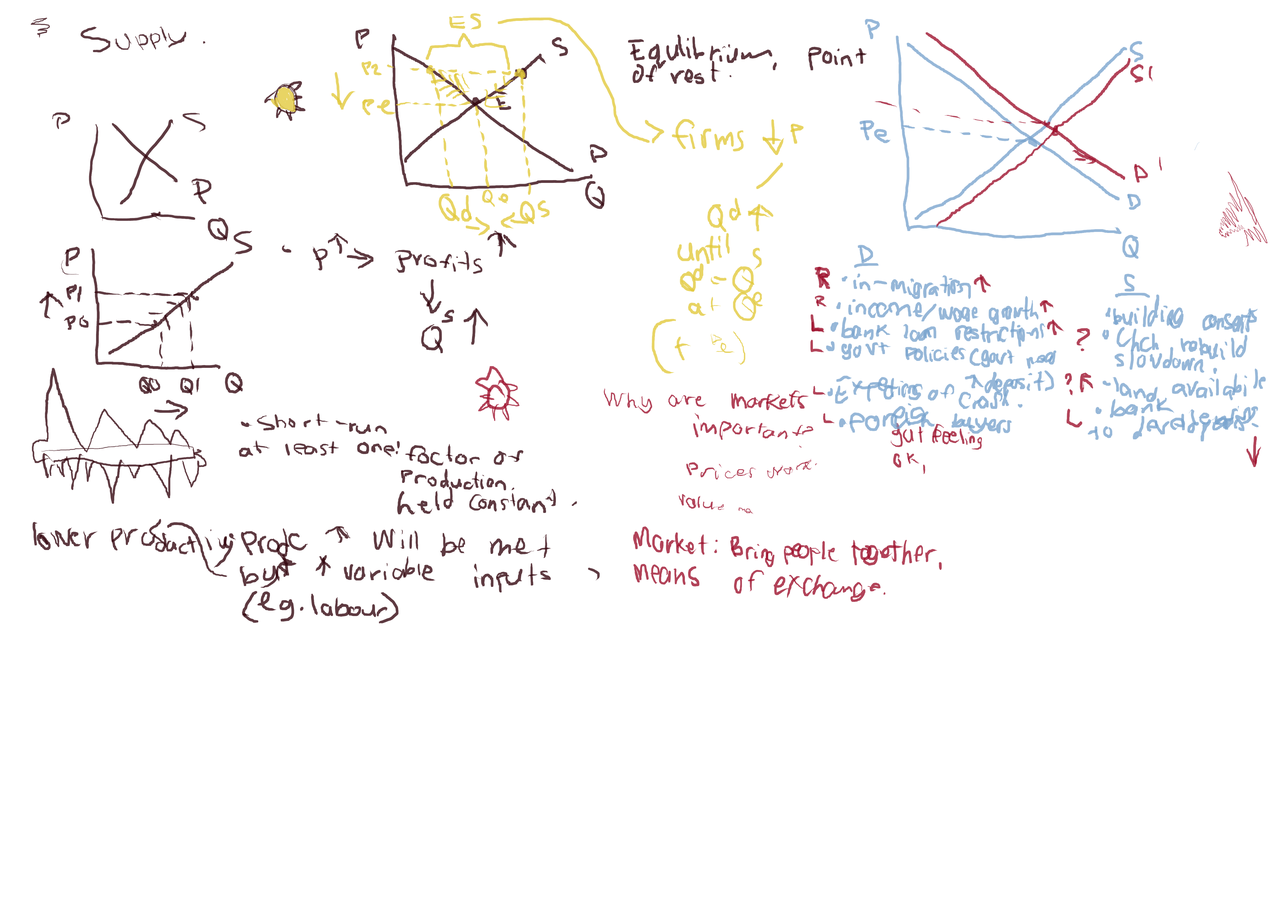 Supply.
P
S
P
Q
P
S
P1
P0
Q0
Q1
Q
• P↑ → profits ↑
↓
Qs ↑
ES
P
P2
↓
Pe
S
E
P
Q
Qd → Qo ← Qs
Equlibrium, point
of rest.
firms ↓ P
Qd ↑
until
Qd = Qs
at Qe
(+ Pe)
P
Pe
S
S'
D'
D
Q
D
R • in-migration ↑
R • income/wage growth ↑
L • bank loan restrictions ↑
L • govt policies (govt
↑ deposit)
L • of crash.
L • buyers
gut feeling
OK,
S
• building consents
? • Chch rebuild
slowdown.
? - land availabile
L • bank
to
↓
• Short-run
at least one! factor of
production
held constant.
lower productivity
Prodc ↑ will be met
but * variable inputs
(eg. labour)
Why are markets
important?
Prices work.
value
Market: Bring people together,
means of exchange.